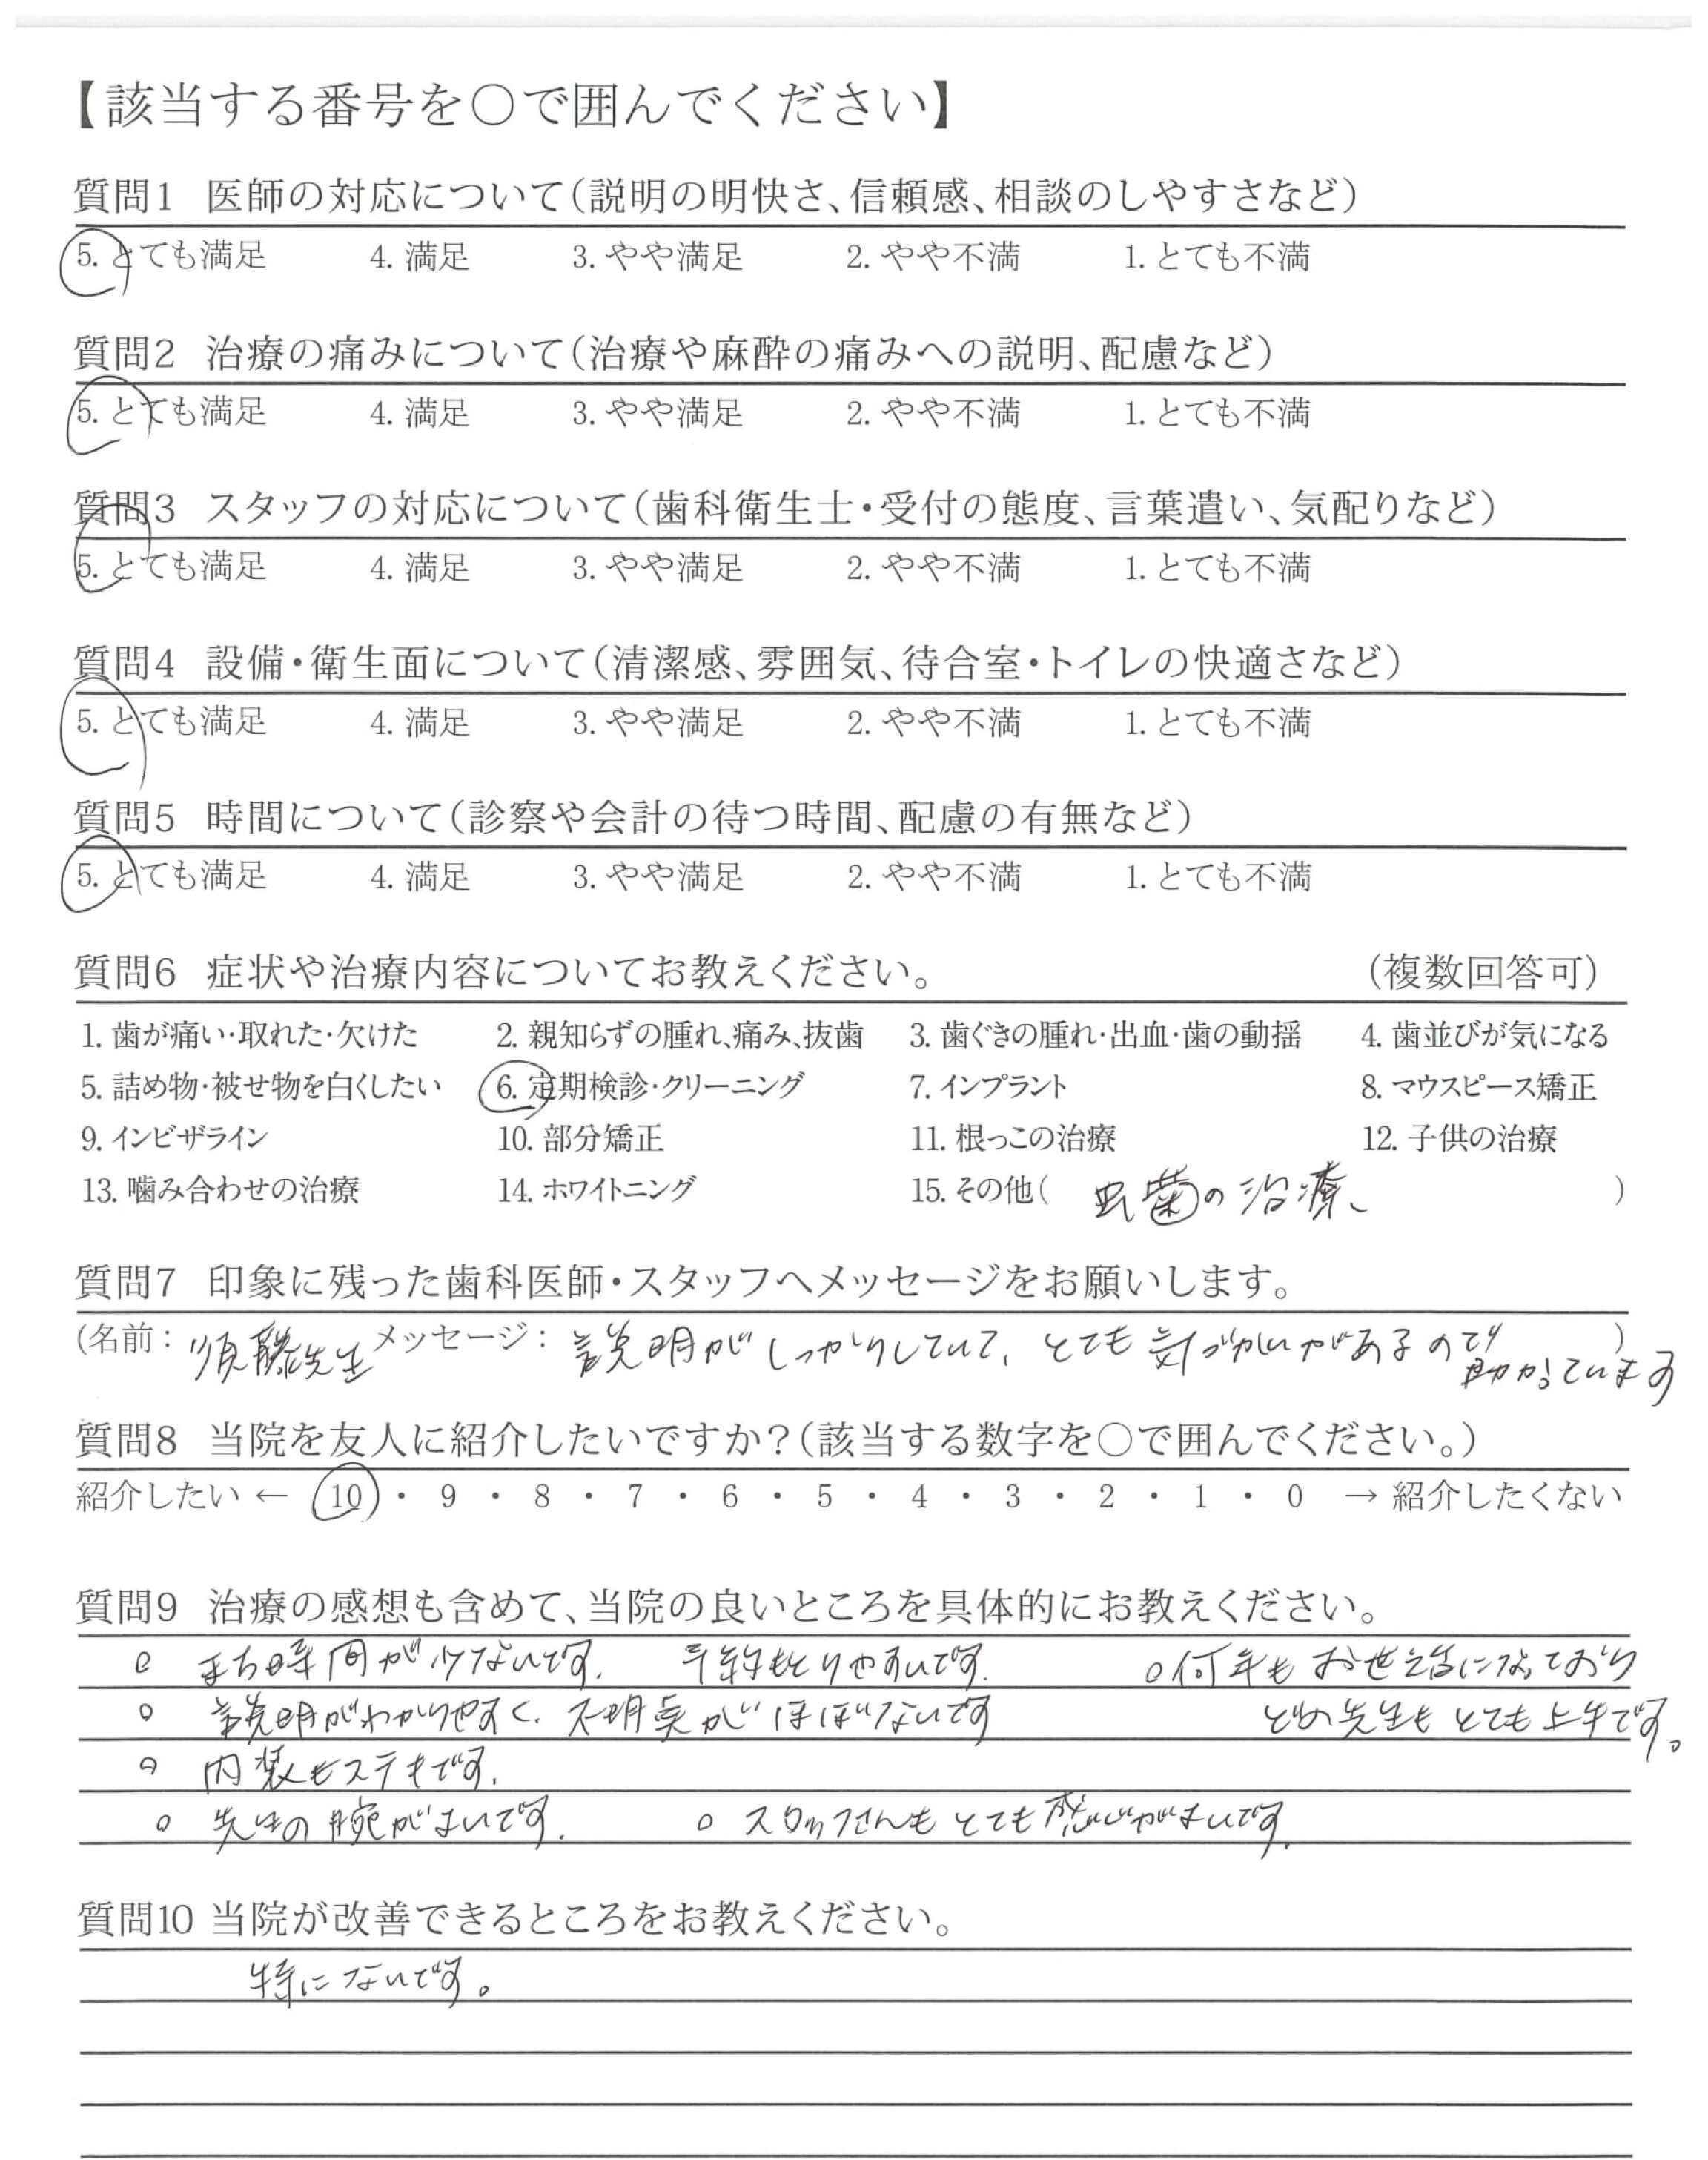 【該当する番号を○で囲んでください】
質問1 医師の対応について(説明の明快さ、信頼感、相談のしやすさなど)
5. とても満足 4. 満足 3. やや満足 2. やや不満 1. とても不満
質問2 治療の痛みについて(治療や麻酔の痛みへの説明、配慮など)
5. とても満足 4. 満足 3. やや満足 2. やや不満 1. とても不満
質問3 スタッフの対応について(歯科衛生士・受付の態度、言葉遣い、気配りなど)
5. とても満足 4. 満足 3. やや満足 2. やや不満 1. とても不満
質問4 設備・衛生面について(清潔感、雰囲気、待合室・トイレの快適さなど)
5. とても満足 4. 満足 3. やや満足 2. やや不満 1. とても不満
質問5 時間について(診察や会計の待つ時間、配慮の有無など)
5. とても満足 4. 満足 3. やや満足 2. やや不満 1. とても不満
質問6 症状や治療内容についてお教えください。 (複数回答可)
1. 歯が痛い・取れた・欠けた 2. 親知らずの腫れ、痛み、抜歯 3. 歯ぐきの腫れ・出血・歯の動揺 4. 歯並びが気になる
5. 詰め物・被せ物を白くしたい 6. 定期検診・クリーニング 7. インプラント 8. マウスピース矯正
9. インビザライン 10. 部分矯正 11. 根っこの治療 12. 子供の治療
13. 噛み合わせの治療 14. ホワイトニング 15. その他( 虫歯の治療、 )
質問7 印象に残った歯科医師・スタッフへメッセージをお願いします。
(名前: 須藤先生 メッセージ: 説明がしっかりしていて、とても気づかいがあるので )
助かっています
質問8 当院を友人に紹介したいですか?(該当する数字を○で囲んでください。)
紹介したい ← 10 ・ 9 ・ 8 ・ 7 ・ 6 ・ 5 ・ 4 ・ 3 ・ 2 ・ 1 ・ 0 → 紹介したくない
質問9 治療の感想も含めて、当院の良いところを具体的にお教えください。
○ まち時間が少ないです。 予約もとりやすいです。 ○何年もお世話になっており
○ 説明がわかりやすく、不明点がほぼないです どの先生もとても上手です。
○ 内装もステキです。
○ 先生の腕がよいです。 ○ スタッフさんもとても感じがよいです。
質問10 当院が改善できるところをお教えください。
特にないです。